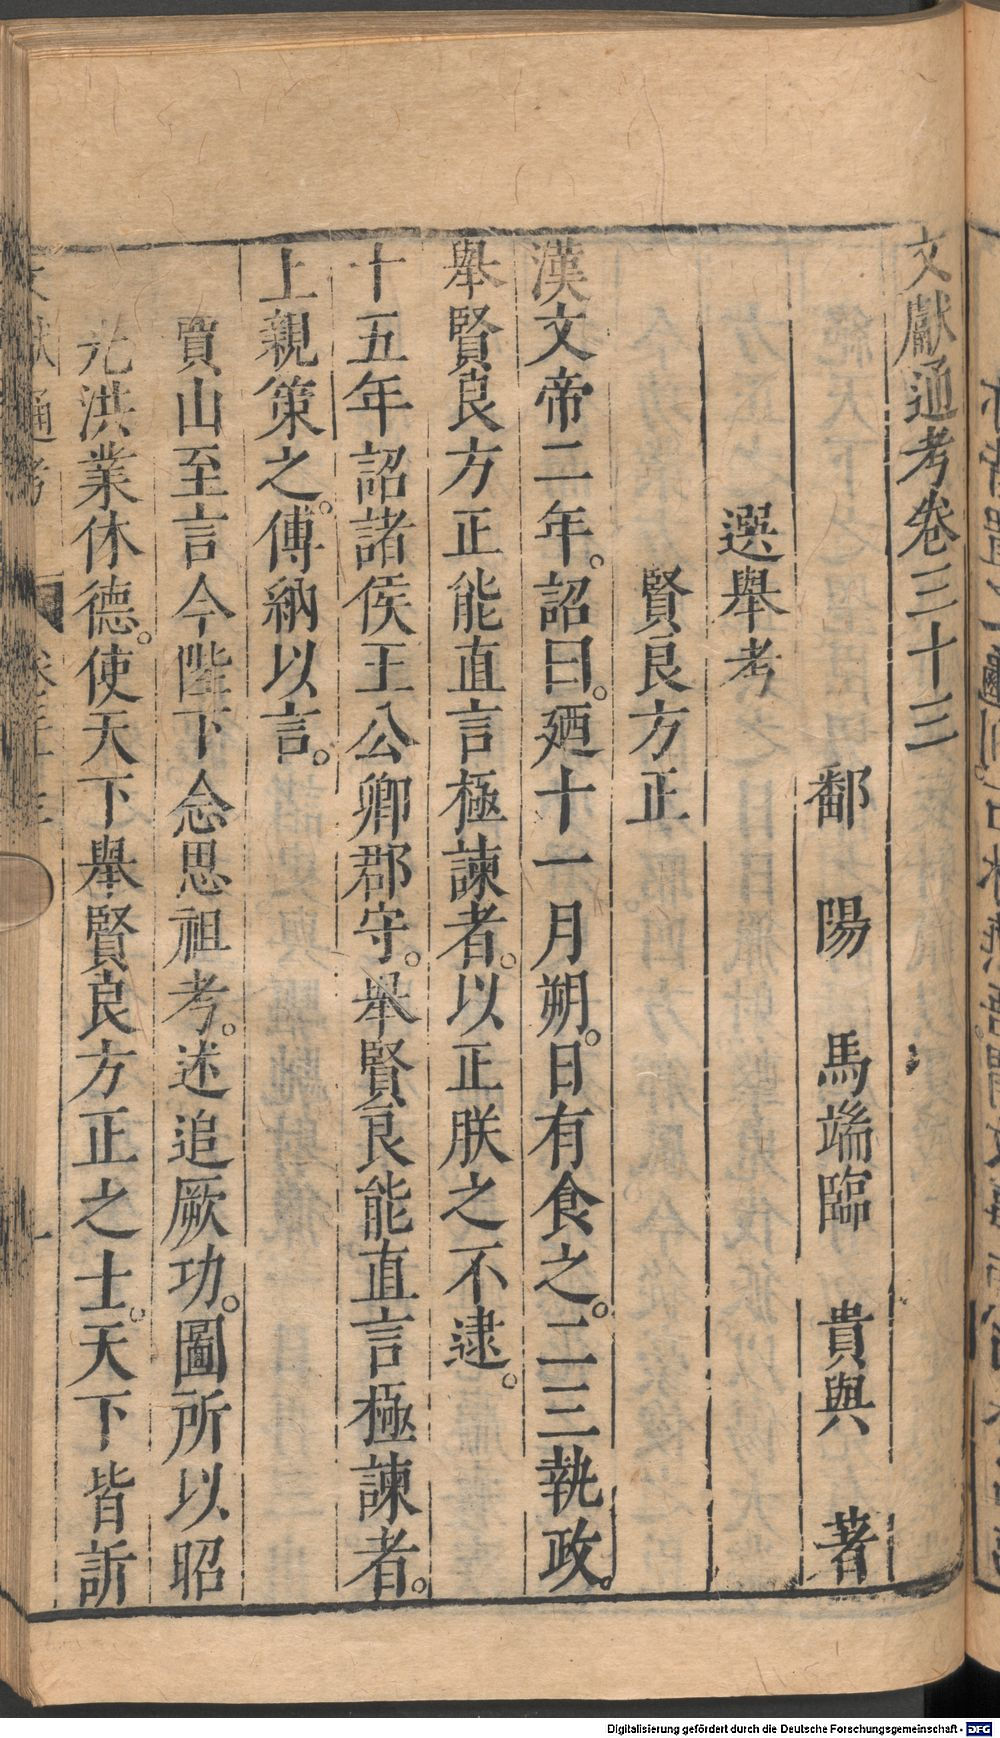 文獻通考卷三十三
鄱陽 馬端臨 貴與 著
選舉考
賢良方正
漢文帝二年。詔曰。廼十一月朔。日有食之。二三執政。
舉賢良方正能直言極諫者。以正朕之不逮。
十五年詔諸侯王公卿郡守。舉賢良能直言極諫者。
上親策之。傅納以言。
賈山至言今陛下念思祖考。述追厥功。圖所以昭
光洪業休德。使天下舉賢良方正之士。天下皆訢
文獻通考 卷三十三 一
Digitalisierung gefördert durch die Deutsche Forschungsgemeinschaft - DFG